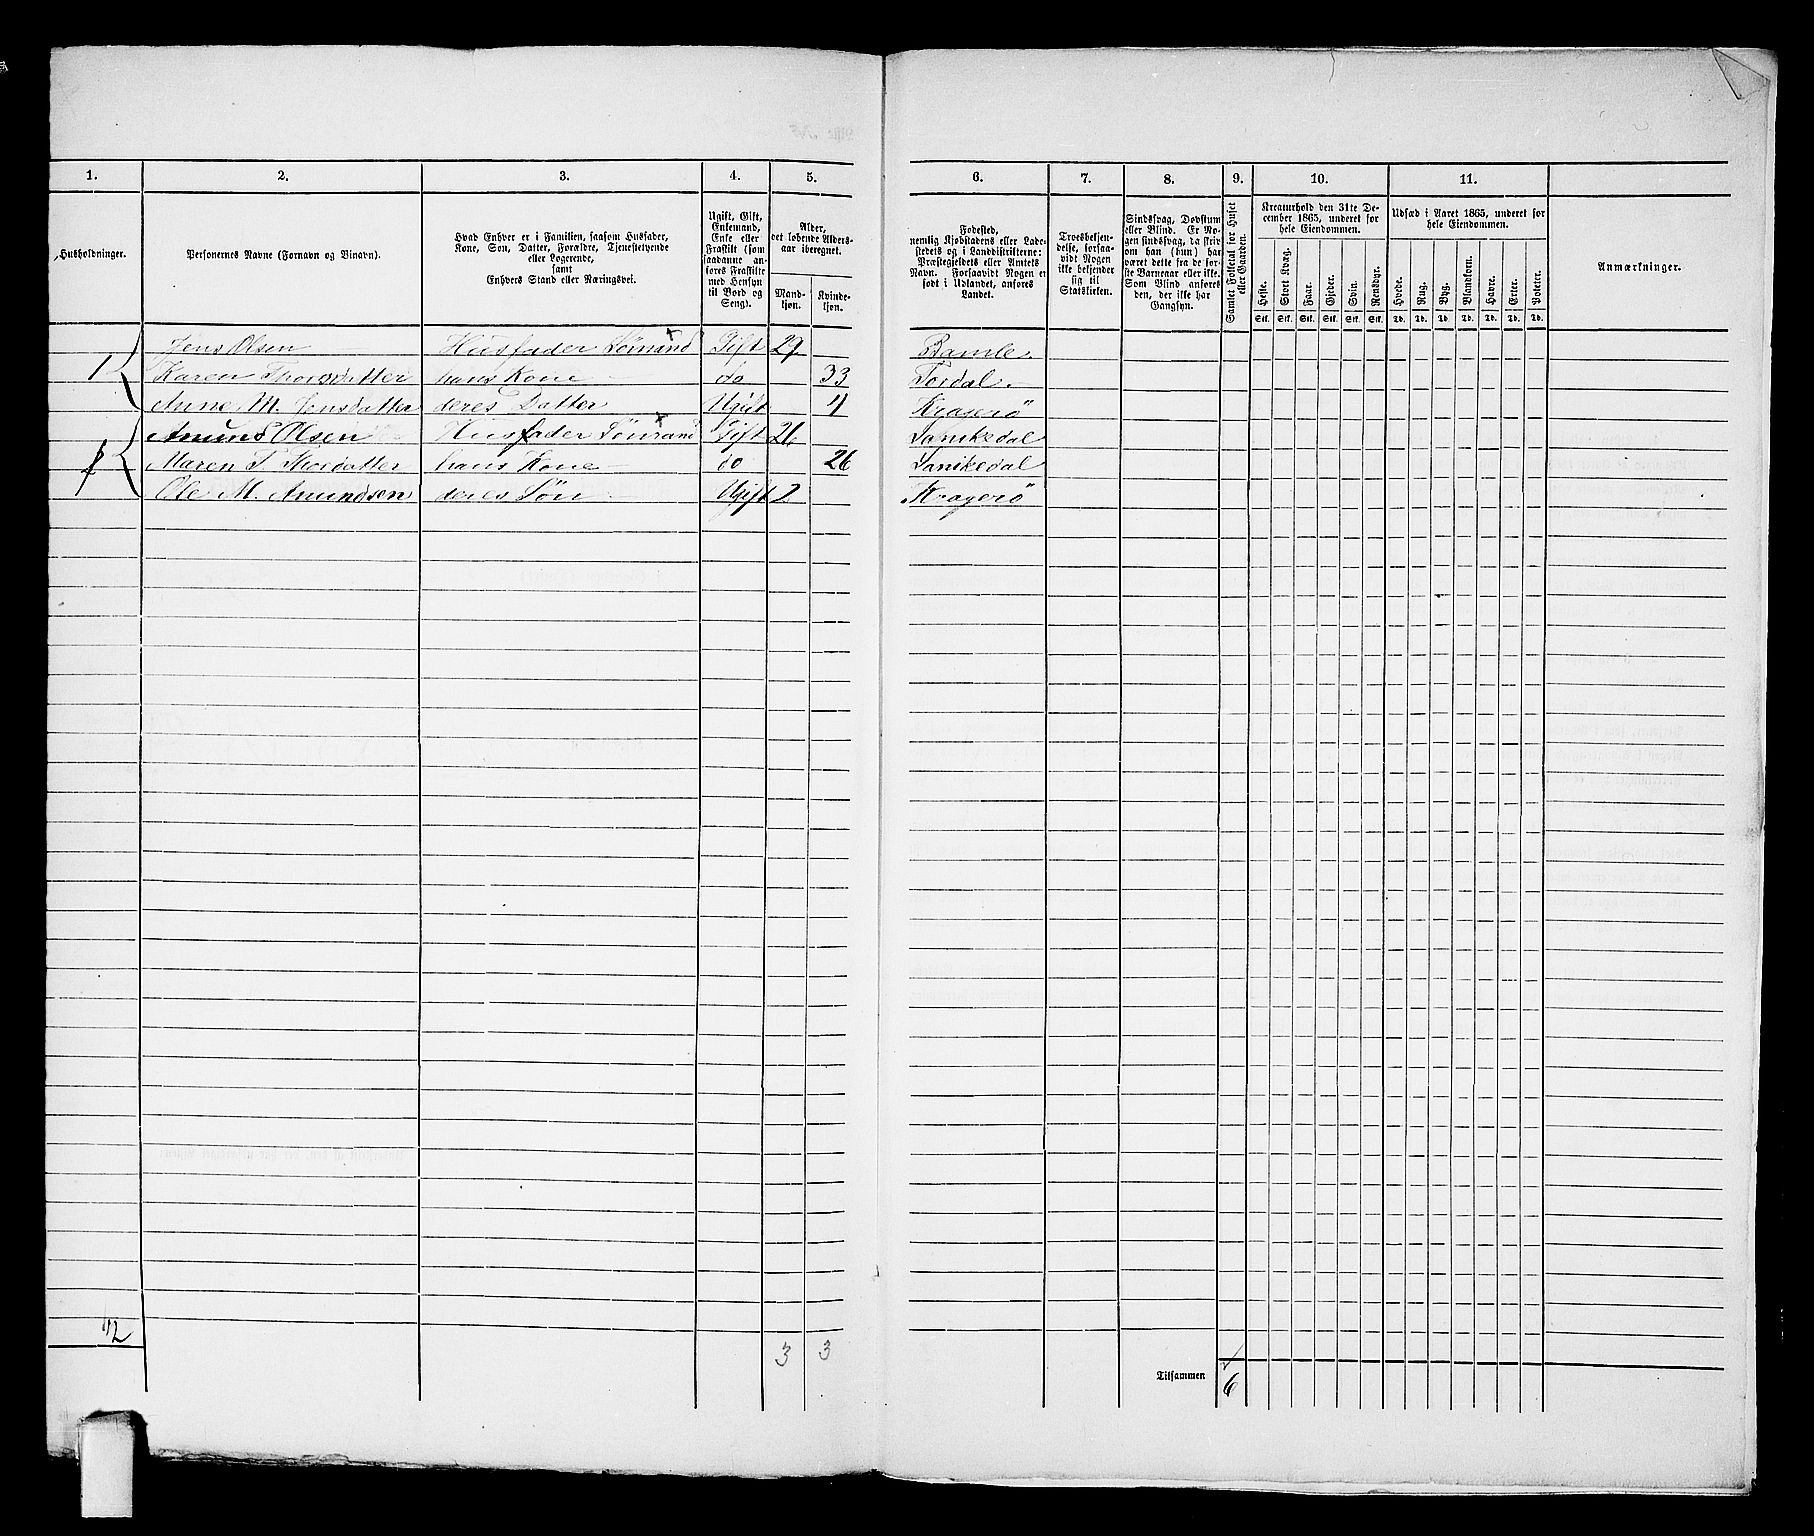 1. 2. 3. 4. 5. 6. 7. 8. 9. 10. 11.
Husholdninger.
Personernes Navne (Fornavn og Tilnavn).
Hvad Enhver er i Familien, saasom Husfader,
Kone, Søn, Datter, Forældre, Tjenestetyende
eller Logerende,
samt
Enhvers Stand eller Næringsvei.
Ugift, Gift,
Enkemand,
Enke eller
Fraskilt (som
saadanne an-
føres Fraskilte
med Hensyn
til Bord og
Seng).
Alder,
det løbende Alders-
aar iberegnet.
Mand-
kjøn.
Kvinde-
kjøn.
Fødested,
nemlig Kjøbstadens eller Lade-
stedets og i Landdistrikterne:
Præstegjeldets eller Amtets
Navn. Forsaavidt Nogen er
født i Udlandet, anføres
Landet.
Troesbekjen-
delse, forsaa-
vidt Nogen
ikke bekjender
sig til
Statskirken.
Sindssvag, Døvstum
eller Blind. Er No-
gen sindssvag, da skriv
om han (hun) har
været dette fra de før-
ste Barneaar eller ikke.
Som Blind anføres
den, der ikke har
Gangsyn.
Samlet Folketal for Huset
eller Gaarden.
Kreaturhold den 31te De-
cember 1865, underet for
hele Eiendommen.
Heste. Stort Kvæg. Faar. Gjeder. Svin. Rensdyr.
Stk. Stk. Stk. Stk. Stk. Stk.
Udsæd i Aaret 1865, underet for
hele Eiendommen.
Hvede. Rug. Byg. Blandkorn. Havre. Erter. Poteter.
Td. Td. Td. Td. Td. Td. Td.
Anmærkninger.
Jens Olsen Husfader Sømand Gift 29 Bamle
1 Karen Thorsdatter hans Kone do 33 Tordal
Anne M. Jensdatter deres Datter Ugift 4 Kragerö
Amund Olsen Husfader Sömand Gift 26 Sanikedal
2 Maren T. Thordatter hans Kone do 26 Sanikedal
Ole M. Amundsen deres Sön Ugift 2 Kragerö
2
3 3
Tilsammen 6